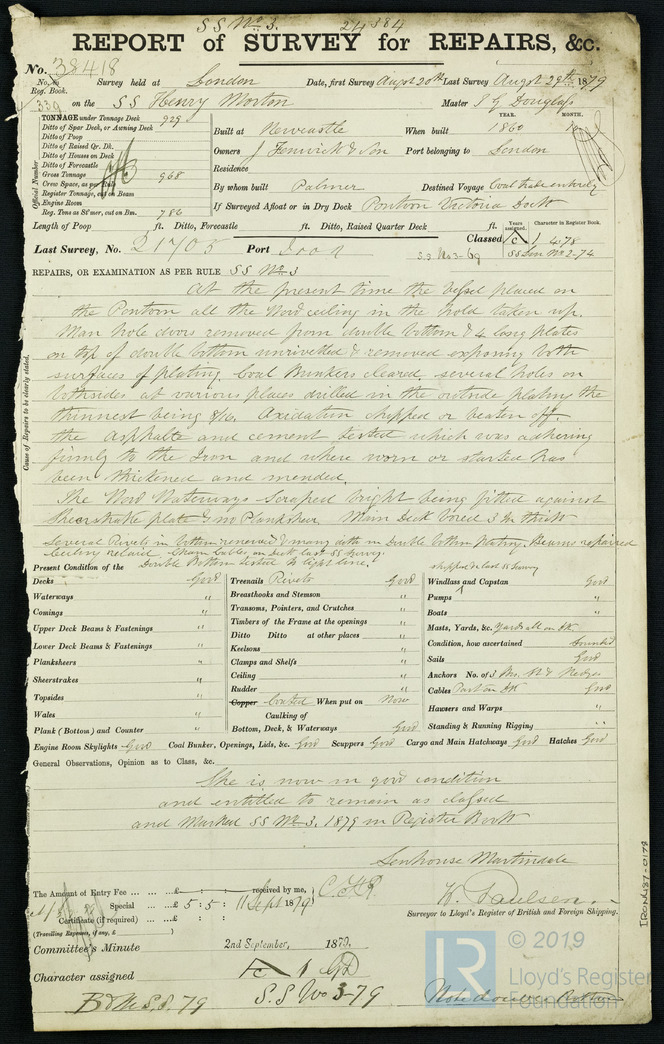 S S No 3. 24384
REPORT of SURVEY for REPAIRS, &c.
No. 38418
No. in Reg. Book. Survey held at London Date, first Survey Augst 20th Last Survey Augst 29th 1879
339 on the SS Henry Morton Master J G Douglass
TONNAGE under Tonnage Deck 929
Ditto of Spar Deck, or Awning Deck
Ditto of Poop
Ditto of Raised Qr. Dk.
Ditto of Houses on Deck
Ditto of Forecastle
Gross Tonnage 968
Crew Space, as per Rule
Register Tonnage, cut on Beam
Engine Room
Reg. Tons as St'mer, cut on Bm. 786
Official Number
YEAR. MONTH.
Built at Newcastle When built 1860 10
Owners J Fenwick & Son Port belonging to London
Residence
By whom built Palmer Destined Voyage Coal trade entirely
If Surveyed Afloat or in Dry Dock Pontoon Victoria Dock
Length of Poop ft. Ditto, Forecastle ft. Ditto, Raised Quarter Deck ft.
Years assigned. Character in Register Book.
Classed 1 4.78
SS Lon No 2-74
Last Survey, No. 21705 Port Iron SS No 3-69
REPAIRS, OR EXAMINATION AS PER RULE SS No 3
Cause of Repairs to be clearly stated.
At the present time the Vessel placed on
the Pontoon all the Wood ceiling in the hold taken up.
Man hole doors removed from double bottom & 4 long plates
on top of double bottom unrivetted & removed exposing both
surfaces of plating. Coal Bunkers cleared several holes on
both sides at various places drilled in the outside plating the
thinnest being 8/16. Oxidation chipped or beaten off.
the asphalte and cement tested which was adhering
firmly to the Iron and where worn or started has
been thickened and mended.
The Wood Waterways scraped bright being fitted against
Sheerstrake plate & no Planksheer. Main Deck bored 3 In thick
Several Rivets in bottom renewed & many ditto in Double bottom plating. Beams repaired
Ceiling relaid. Chain Cables on Deck last SS Survey.
Double Bottom tested to light line. shipped in last SS Survey
Present Condition of the
Decks Good
Waterways "
Comings "
Upper Deck Beams & Fastenings "
Lower Deck Beams & Fastenings "
Planksheers "
Sheerstrakes "
Topsides "
Wales "
Plank (Bottom) and Counter "
Treenails Rivets Good
Breasthooks and Stemson "
Transoms, Pointers, and Crutches "
Timbers of the Frame at the openings "
Ditto Ditto at other places "
Keelsons "
Clamps and Shelfs "
Ceiling "
Rudder "
Copper Coated When put on Now
Caulking of
Bottom, Deck, & Waterways Good
Windlass and Capstan Good
Pumps "
Boats "
Masts, Yards, &c. Yards all on Dk
Condition, how ascertained Sounded
Sails Good
Anchors No. of 3
Cables Part on Dk Good
Hawsers and Warps "
Standing & Running Rigging "
Engine Room Skylights Good Coal Bunker, Openings, Lids, &c. Good Scuppers Good Cargo and Main Hatchways Good Hatches Good
General Observations, Opinion as to Class, &c.
She is now in good condition
and entitled to remain as classed
and Marked SS No 3. 1879 in Register Book
Senhouse Martindale
The Amount of Entry Fee £ : : received by me,
Special £ 5 : 5 : 11 Sept 1879
Certificate (if required) £ : :
(Travelling Expenses, if any, £ )
W. Paulsen
Surveyor to Lloyd's Register of British and Foreign Shipping.
Committee's Minute 2nd September, 1879.
Character assigned 1
S.S No 3-79
79
IRON487-0179
LR
© 2019
Lloyd's Register
Foundation